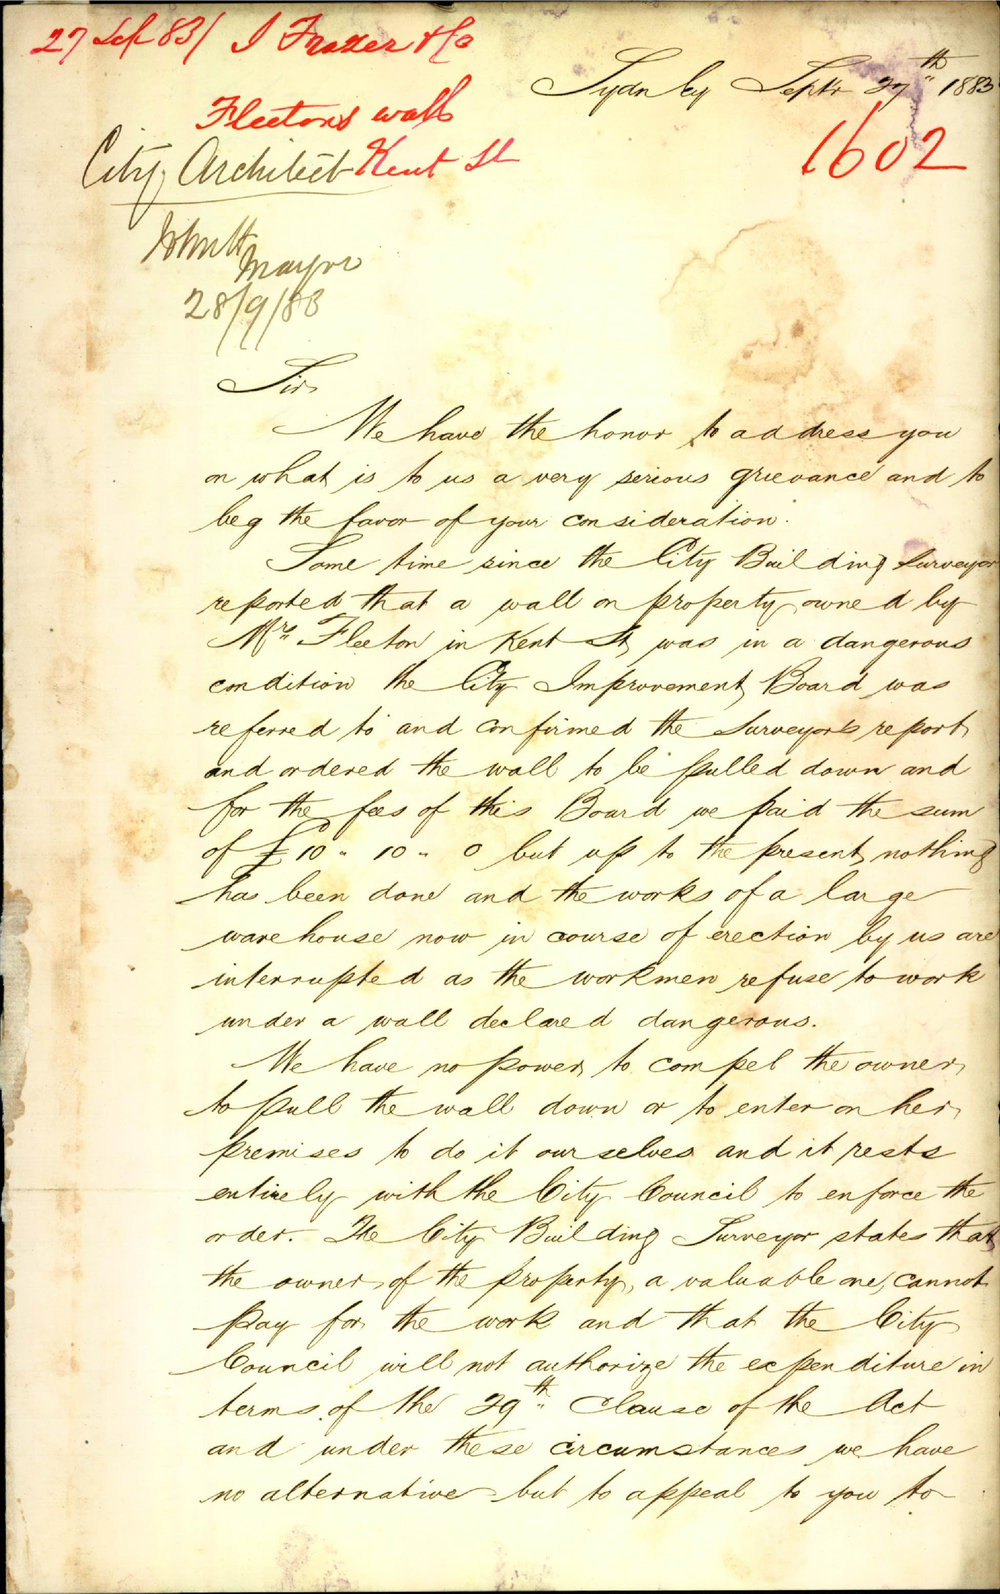 27 Sep 83/ J Frazer & Co
Sydney Septr 27th 1883
Fleetons wall
1602
City Architect Kent St
Mayor
28/9/83
Sir
We have the honor to address you
on what is to us a very serious grievance and to
beg the favor of your consideration.
Some time since the City Building Surveyor
reported that a wall on property owned by
Mrs Fleeton in Kent St, was in a dangerous
condition the City Improvement Board was
referred to and confirmed the Surveyor's report
and ordered the wall to be pulled down and
for the fees of this Board we paid the sum
of £10 " 10 " 0 but up to the present nothing
has been done and the works of a large
warehouse now in course of erection by us are
interrupted as the workmen refuse to work
under a wall declared dangerous.
We have no power to compel the owner
to pull the wall down or to enter on her
premises to do it ourselves and it rests
entirely with the City Council to enforce the
order. The City Building Surveyor states that
the owner of the property, a valuable one, cannot
pay for the work and that the City
Council will not authorize the expenditure in
terms of the 29th Clause of the Act
and under these circumstances we have
no alternative but to appeal to you to